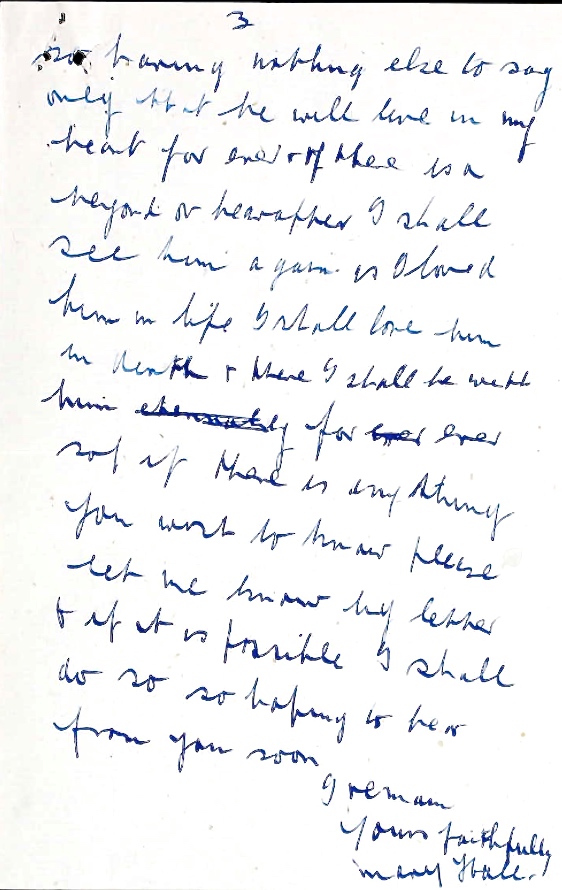 3
so having nothing else to say
only that he will live in my
heart for ever & if there is a
beyond or hearafter I shall
see him again as I loved
him in life I shall love him
in death & there I shall be with
him eternally for ever ever
so if there is anything
you wont to know please
let me know by letter
& if it is possible I shall
do so so hoping to hear
from you soon
I remain
yours faithfully
Mary Hall.